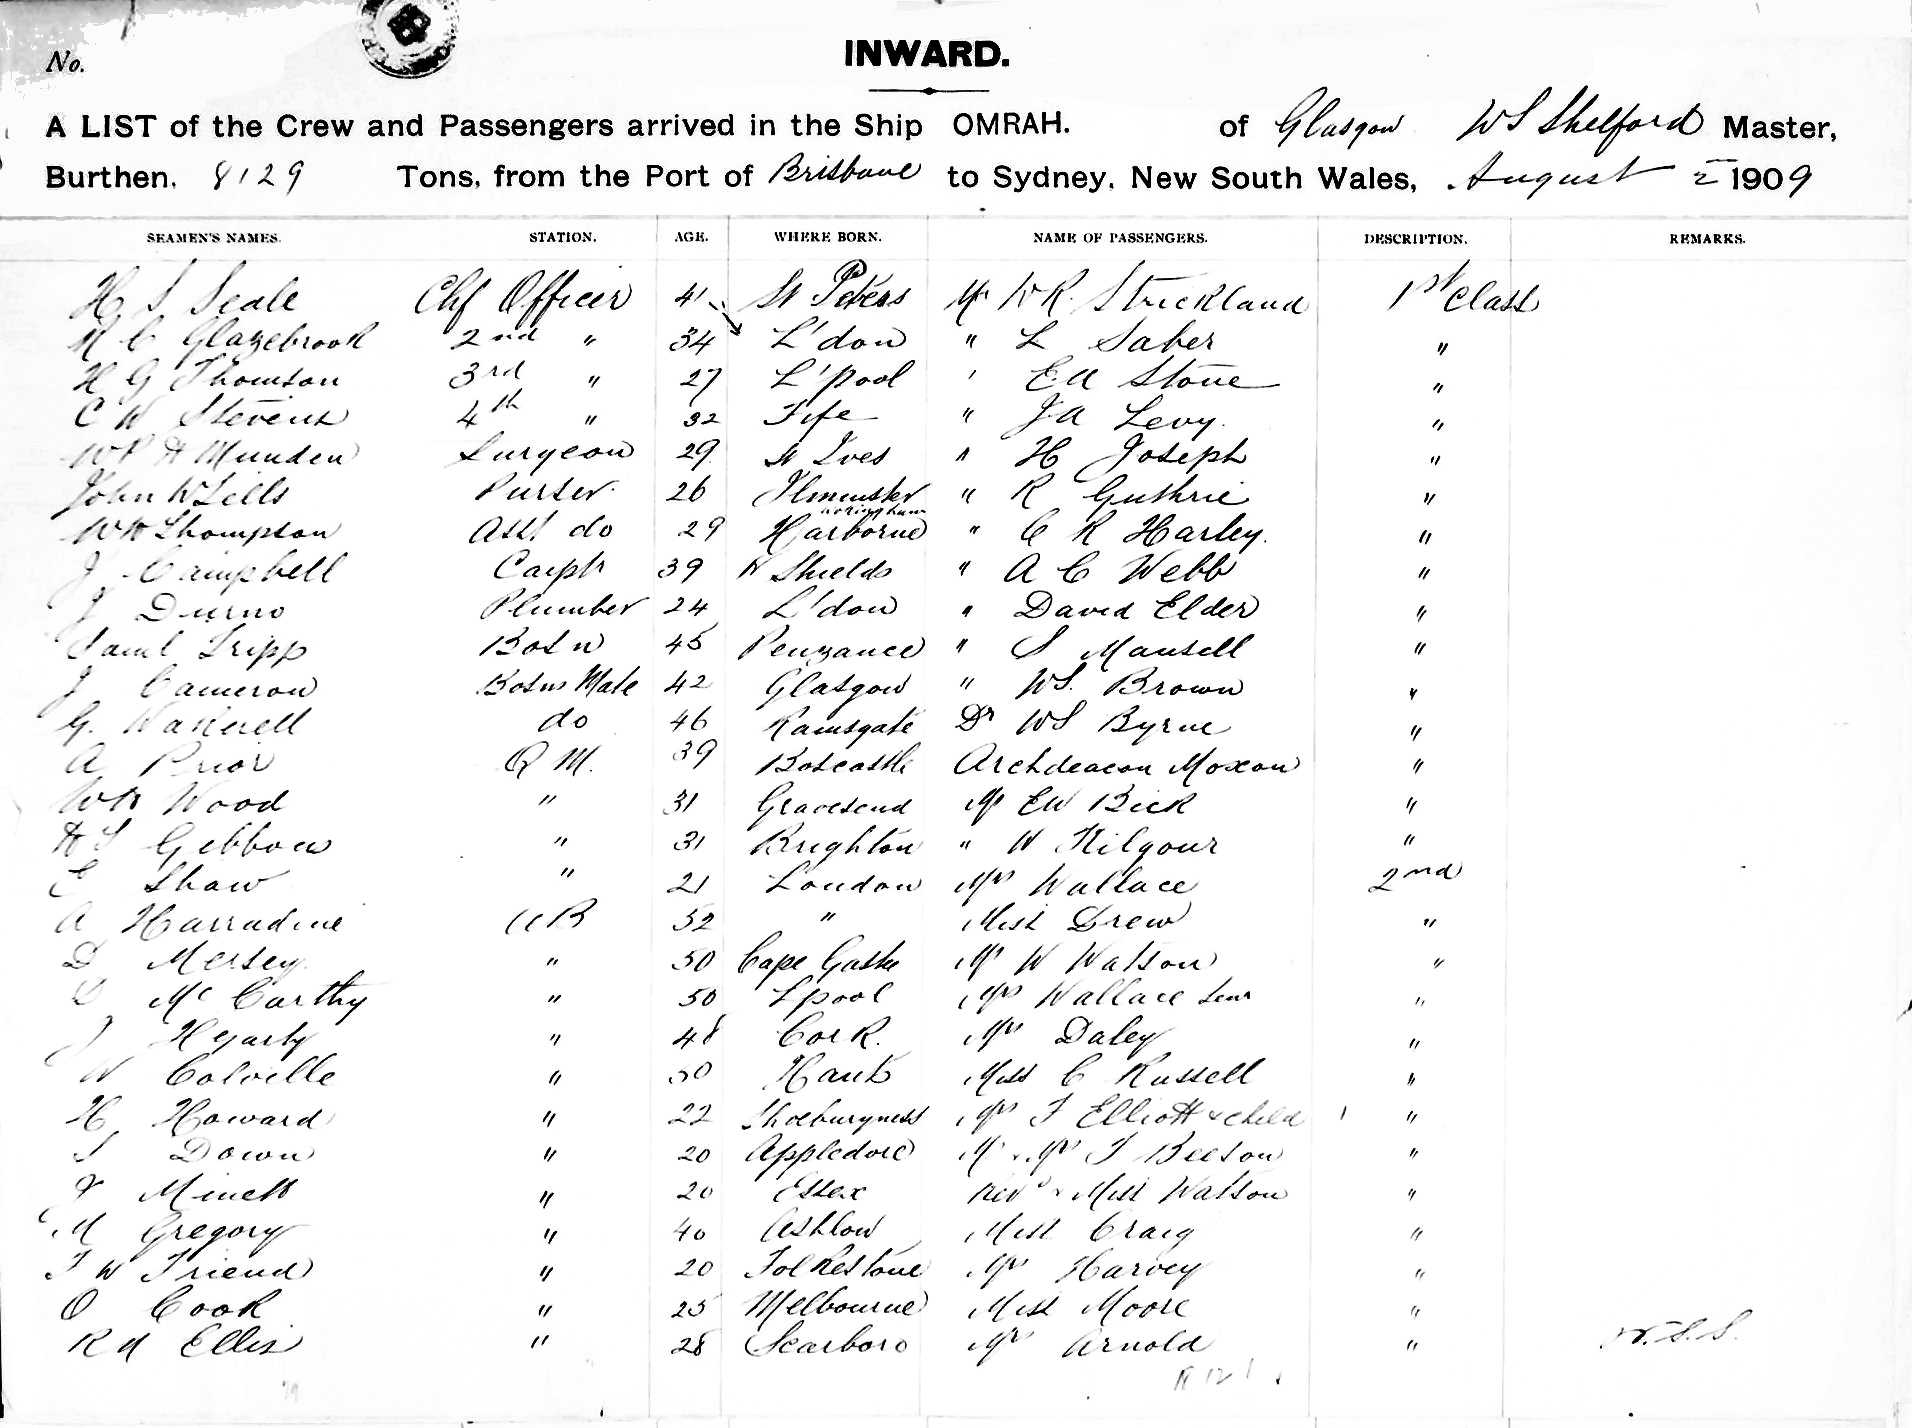 No.
INWARD.
A LIST of the Crew and Passengers arrived in the Ship OMRAH. of Glasgow W S Shelford Master,
Burthen, 8129 Tons, from the Port of Brisbane to Sydney, New South Wales, August 2 1909
SEAMEN'S NAMES. STATION. AGE. WHERE BORN. NAME OF PASSENGERS. DESCRIPTION. REMARKS.
H S Seale Chf Officer 41 St Peters Mr W R. Strickland 1st Class
R C Glazebrook 2nd " 34 L'don " L Saber "
H G Thomson 3rd " 27 L'pool ' E A Stone "
C W Stevens 4th " 32 Fife " J A Levy. "
W P H Munden Surgeon 29 St Ives " H Joseph "
John W Sells Purser. 26 Ilminster " R Guthrie "
W H Thompson Asst do 29 Harborne " C R Harley. "
J Campbell Carptr 39 N Shields " A C Webb "
J Durno Plumber 24 L'don " David Elder "
Saml Tripp Bosn 45 Penzance " S Mansell "
J Cameron Bosns Mate 42 Glasgow " W S. Brown "
G. Wakerell do 46 Ramsgate Dr W S Byrne "
A Prior Q M. 39 Boscastle Archdeacon Moxon "
W H Wood " 31 Gravesend Mr E W Bick "
H S Gibbon " 31 Brighton " W Kilgour "
E Shaw " 21 London Mrs Wallace 2nd
A Harradine AB 52 " Miss Drew "
D Mersey. " 50 Cape Gaspe Mr W Watson "
D McCarthy " 50 Lpool Mrs Wallace Senr "
J Hegarty " 48 Cork. Mrs Daley "
W Colville " 50 Hants Miss C Russell "
H Howard " 22 Shoeburyness Mrs F Elliott & child 1 "
S Down " 20 Appledore Mr & Mrs F Beeson "
J Minett " 20 Essex Revd & Miss Watson "
M Gregory " 40 Ashlow Miss Craig "
F W Friend " 20 Folkestone Mrs Harvey "
O Cook " 25 Melbourne Miss Moore "
R H Ellis " 28 Scarboro Mrs Arnold " W.S.S.